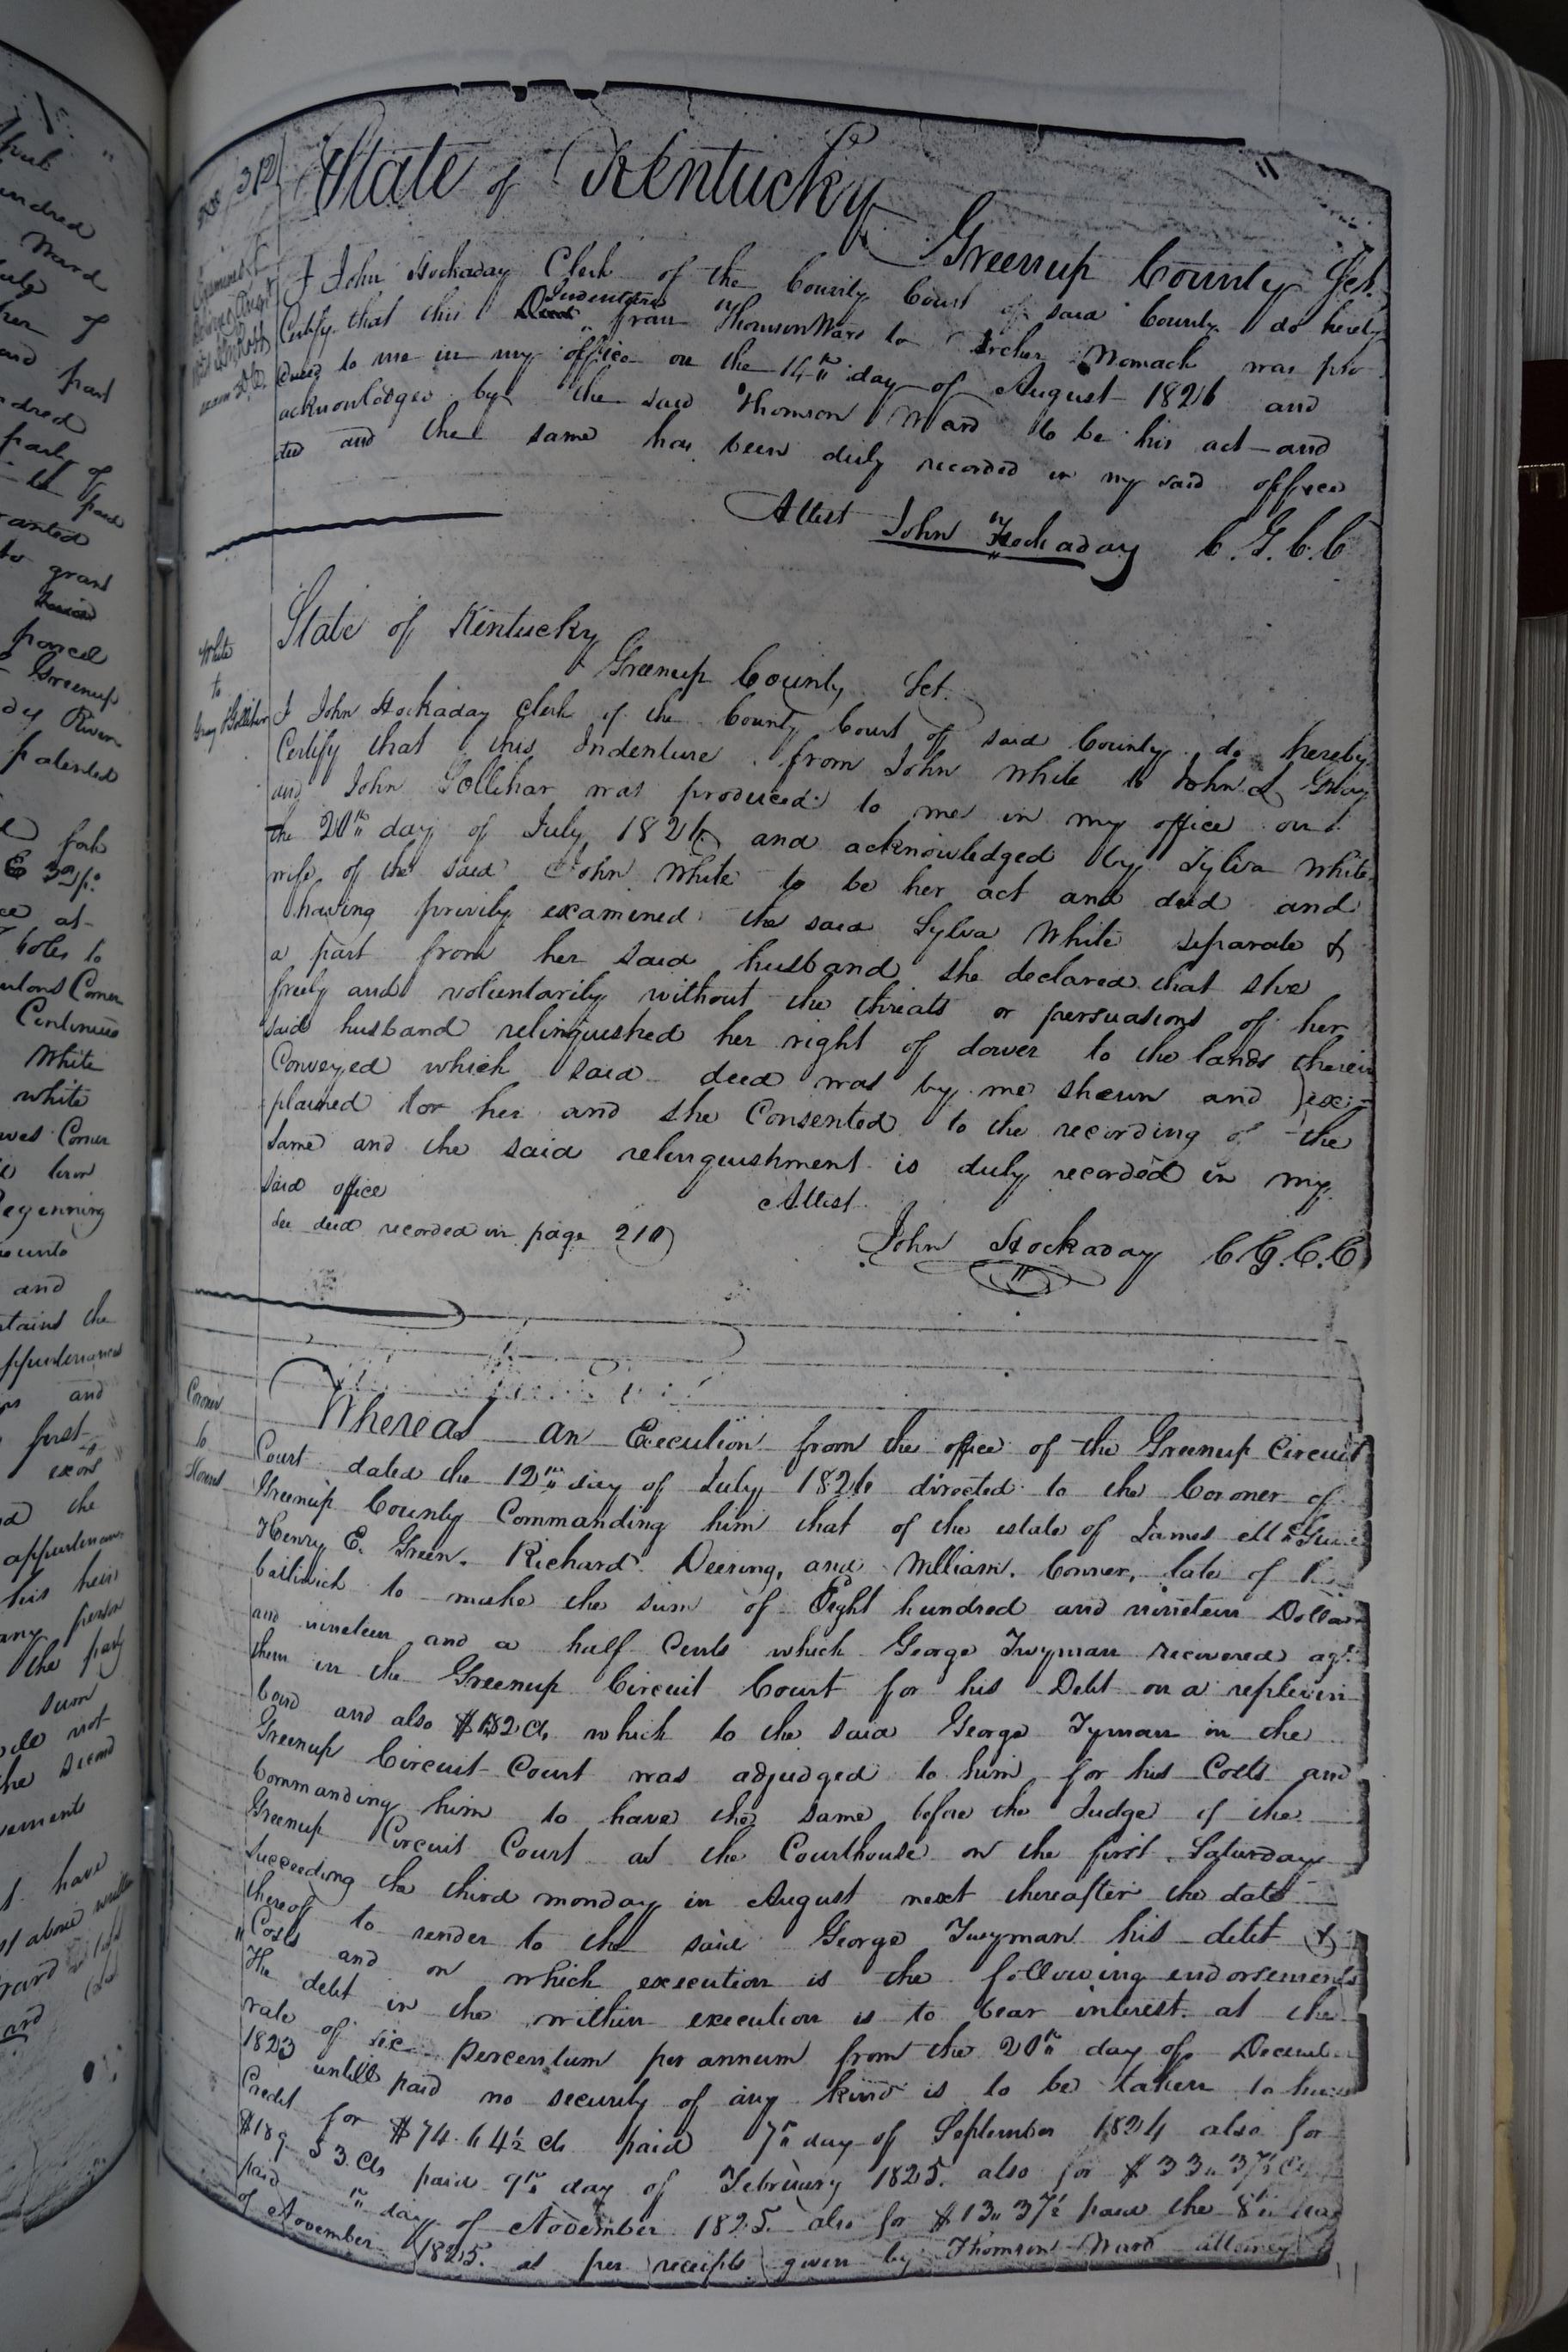 312
State of Kentucky
Greenup County Sct.
I John Hockaday Clerk of the County Court of said County do hereby
Certify that this Indenture from Thomson Ward to Archer Womack was pro
duced to me in my office on the 14th day of August 1826 and
acknowledged by the said Thomson Ward to be his act and
deed and the same has been duly recorded in my said office
Attest John Hockaday C.G.C.C
White
to
Gray & Gollihar
State of Kentucky
Greenup County Sct.
I John Hockaday Clerk of the County Court of said County do hereby
Certify that this Indenture from John White to John L Gray
and John Gollihar was produced to me in my office on
the 20th day of July 1826 and acknowledged by Sylva White
wife of the said John White to be her act and deed and
having privily examined the said Sylva White separate &
a part from her said husband she declared that she
freely and voluntarily without the threats or persuasions of her
said husband relinquished her right of dower to the lands therein
Conveyed which said deed was by me shewn and ex-
plained to her and she Consented to the recording of the
same and the said relinquishment is duly recorded in my
said office Attest.
See deed recorded in page 210
John Hockaday C.G.C.C
Coroner
to
Whereas an Execution from the office of the Greenup Circuit
Court dated the 12th day of July 1826 directed to the Coroner of
Greenup County Commanding him that of the estate of James McGuire
Henry E. Green, Richard Deering, and William Conner, late of
bailiwick to make the sum of Eight hundred and nineteen Dollars
and nineteen and a half Cents which George Twyman recovered agt.
them in the Greenup Circuit Court for his Debt on a replevin
bond and also which to the said George Tyman in the
Greenup Circuit Court was adjudged to him for his Costs and
Commanding him to have the same before the Judge of the
Greenup Circuit Court at the Courthouse on the first Saturday
succeeding the third monday in August next thereafter the date
thereof to render to the said George Twyman his debt &
Costs and on which execution is the following endorsements
The debt in the within execution is to bear interest at the
rate of six percentum per annum from the 20th day of December
1823 untill paid no security of any kind is to be taken
Credit for $74.64½ cts paid 7th day of September 1824 also for
$189 53 Cts paid 9th day of February 1825. also for $33 37½
paid day of November 1825. also for $13 37½ paid the 8th day
of November 1825. as per receipts given by Thomson Ward attorney